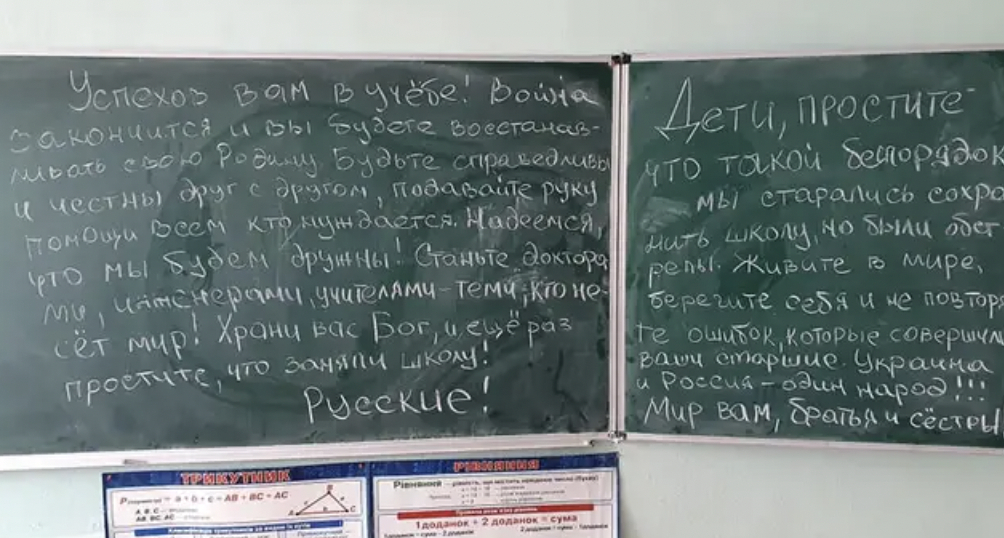 Успехов вам в учёбе! Война
закончится и вы будете восстанав-
ливать свою Родину. Будьте справедливы
и честны друг с другом, подавайте руку
помощи всем кто нуждается. Надеемся,
что мы будем дружны! Станьте доктора
ми, инженерами, учителями-теми, кто не-
сёт мир! Храни вас Бог, и ещё раз
простите, что заняли школу!
Русские!
Дети, простите-
что такой беспорядок
мы старались сохра
нить школу, но были обст
релы. Живите в мире,
берегите себя и не повтор
те ошибок, которые совершил
ваши старшие. Украина
и Россия-один народ!!!
Мир вам, братья и сёстры
ТРИКУТНИК
= a + b + c = AB + BC + AC
A, B, C —
AB, BC, AC —
A B C
РІВНЯННЯ
Рівняння — рівність, що містить невідоме число (букву)
1 доданок + 2 доданок = сума